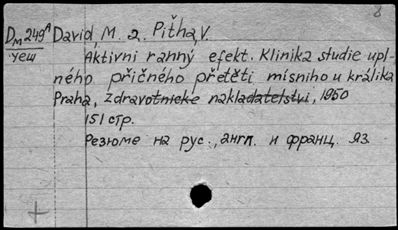 8
Dм 249А David, M. a. Pitha, V.
чеш Aktivni ranný efekt. Klinika studie upl-
ného příčného přetěti mísního u králíka
Praha, zdravotnické nakladatelství, 1950
151 стр.
Резюме на рус., англ. и франц. яз.
+